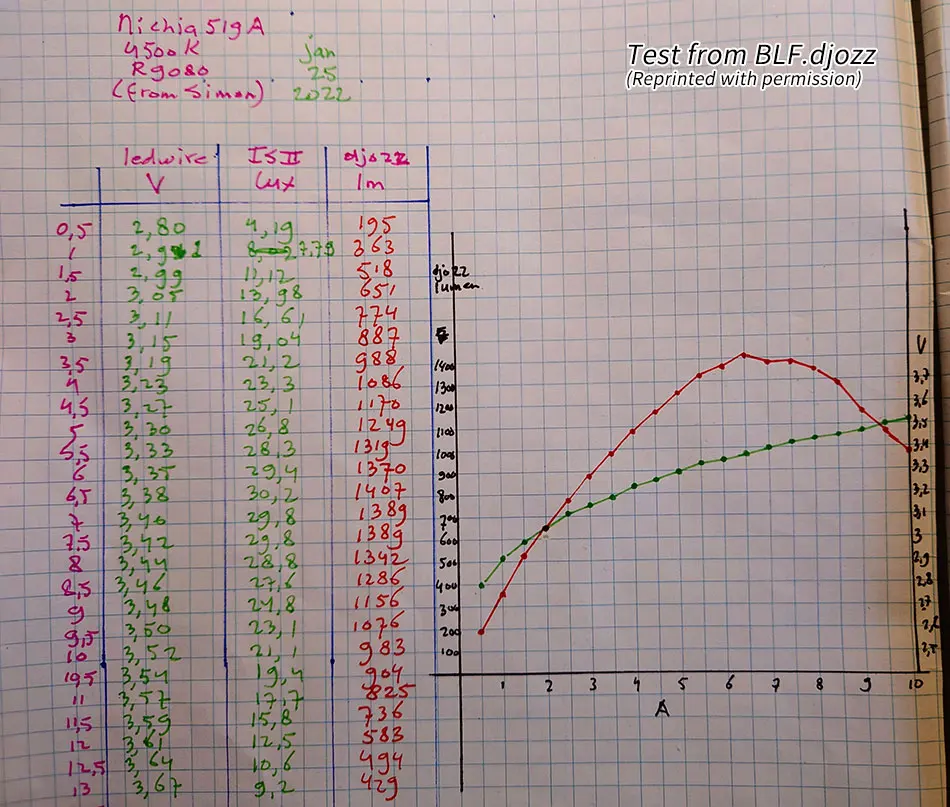 Nichia 519A
4500K
R9080
(from Simon)
jan
25
2022
Test from BLF.djozz
(Reprinted with permission)
ledwire IS II djozz
V lux lm
0,5 2,80 4,19 195
1 2,91 7,79 363
1,5 2,99 11,12 518
2 3,05 13,98 651
2,5 3,11 16,61 774
3 3,15 19,04 887
3,5 3,19 21,2 988
4 3,23 23,3 1086
4,5 3,27 25,1 1170
5 3,30 26,8 1249
5,5 3,33 28,3 1319
6 3,35 29,4 1370
6,5 3,38 30,2 1407
7 3,40 29,8 1389
7,5 3,42 29,8 1389
8 3,44 28,8 1342
8,5 3,46 27,6 1286
9 3,48 24,8 1156
9,5 3,50 23,1 1076
10 3,52 21,1 983
10,5 3,54 19,4 904
11 3,57 17,7 825
11,5 3,59 15,8 736
12 3,61 12,5 583
12,5 3,64 10,6 494
13 3,67 9,2 429
djozz
lumen
1400
1300
1200
1100
1000
900
800
700
600
500
400
300
200
100
V
3,7
3,6
3,5
3,4
3,3
3,2
3,1
3
2,9
2,8
2,7
1 2 3 4 5 6 7 8 9 10
A